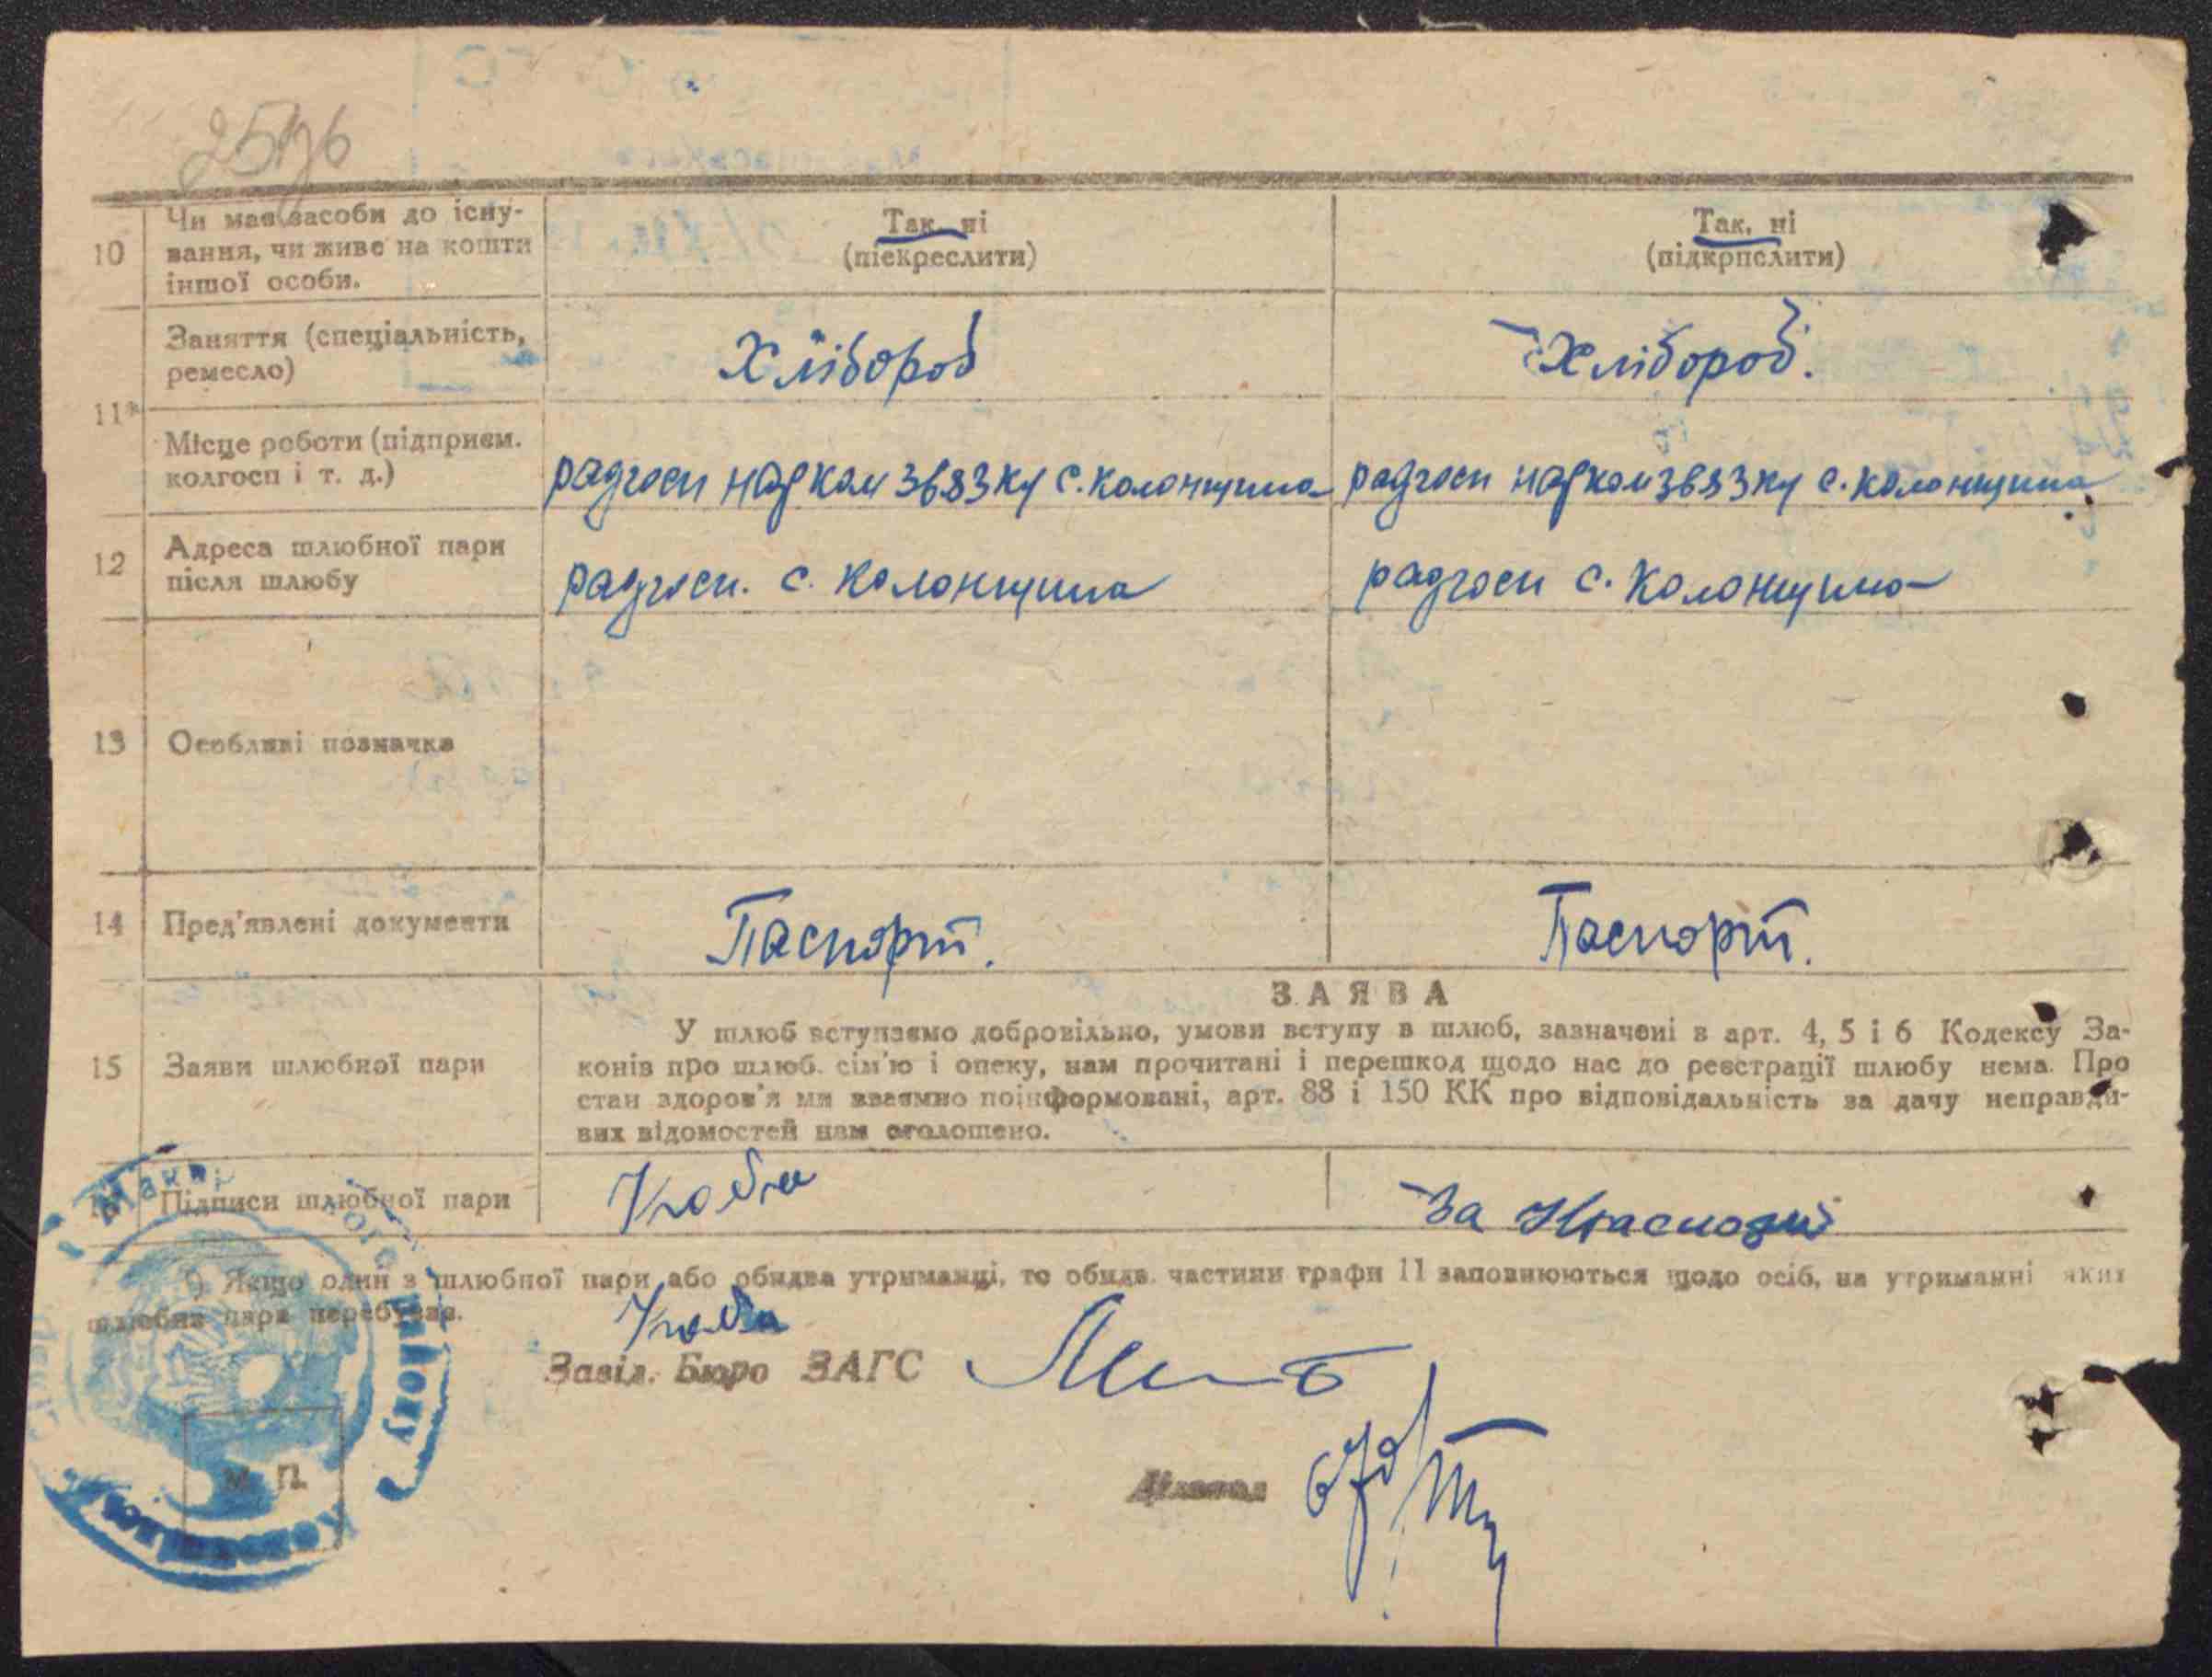 10
Чи має засоби до існу-
вання, чи живе на кошти
іншої особи.
Так, ні
(піекреслити)
Так, ні
(підкрпслити)
11*
Заняття (спеціальність,
ремесло)
Хлібороб
Хлібороб.
Місце роботи (підприєм.
колгосп і т. д.)
радгосп наркомзвязку с. Колонщина
радгосп наркомзвязку с. Колонщина
12
Адреса шлюбної пари
після шлюбу
радгосп. с. Колонщина
радгосп с. Колонщина
13
Особливі позначки
14
Пред'явлені документи
Паспорт.
Паспорт.
15
Заяви шлюбної пари
ЗАЯВА
У шлюб вступаємо добровільно, умови вступу в шлюб, зазначені в арт. 4, 5 і 6 Кодексу За-
конів про шлюб. сім'ю і опеку, нам прочитані і перешкод щодо нас до реєстрації шлюбу нема. Про
стан здоров'я ми взаємно поінформовані, арт. 88 і 150 КК про відповідальність за дачу неправди-
вих відомостей нам оголошено.
16
Підписи шлюбної пари
За
*) Якщо один з шлюбної пари або обидва утриманці, то обидв. частини графи 11 заповнюються щодо осіб, на утриманні яких
шлюбна пара перебуває.
Завід. Бюро ЗАГС
Діловод
М. П.